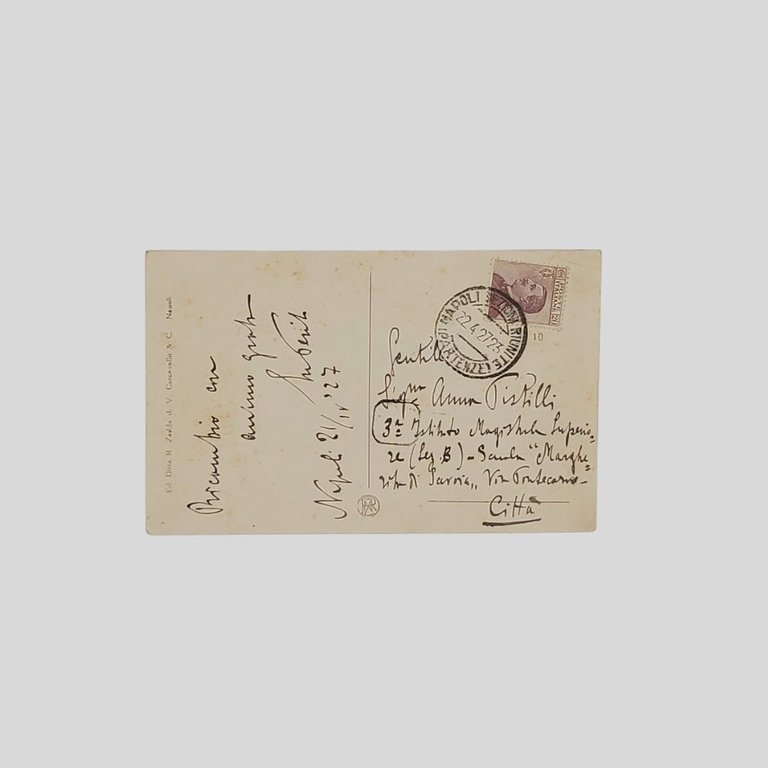 Ed. Ditta R. Zedda di V. Carcavallo & C. - Napoli
Ricambio con
animo grato
Napoli 21/IV '27
NAPOLI SEZIONI RIUNITE (PARTENZE)
22.4.27 23
POSTE ITALIANE
10
Gentile
Sig.na Anna Pistilli
3a Istituto Magistrale Superio=
re (Sez. B) - Scuola "Marghe=
rita di Savoia" Via Pontecorvo -
Città